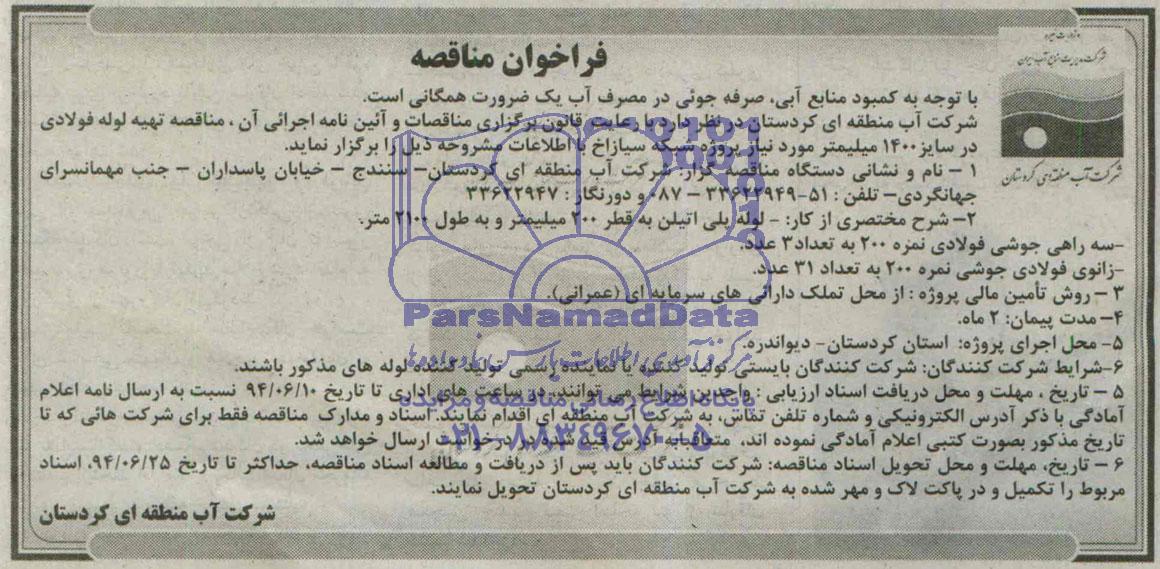 وزارت نیرو
شرکت مدیریت منابع آب ایران
شرکت آب منطقه‌ای کردستان
فراخوان مناقصه
با توجه به کمبود منابع آبی، صرفه جوئی در مصرف آب یک ضرورت همگانی است.
شرکت آب منطقه ای کردستان در نظر دارد با رعایت قانون برگزاری مناقصات و آئین نامه اجرائی آن ، مناقصه تهیه لوله فولادی
در سایز ۱۴۰۰ میلیمتر مورد نیاز پروژه شبکه سیازاخ با اطلاعات مشروحه ذیل را برگزار نماید.
۱ – نام و نشانی دستگاه مناقصه گزار: شرکت آب منطقه ای کردستان– سنندج – خیابان پاسداران – جنب مهمانسرای
جهانگردی– تلفن : ۵۱-۳۳۶۲۲۹۴۹ – ۰۸۷ و دورنگار : ۳۳۶۲۲۹۴۷
۲– شرح مختصری از کار: - لوله پلی اتیلن به قطر ۲۰۰ میلیمتر و به طول ۲۱۰۰ متر.
-سه راهی جوشی فولادی نمره ۲۰۰ به تعداد۳ عدد.
-زانوی فولادی جوشی نمره ۲۰۰ به تعداد ۳۱ عدد.
۳ – روش تأمین مالی پروژه : از محل تملک دارائی های سرمایه ای (عمرانی).
۴– مدت پیمان: ۲ ماه.
۵- محل اجرای پروژه: استان کردستان- دیواندره.
۶-شرایط شرکت کنندگان: شرکت کنندگان بایستی تولید کننده یا نماینده رسمی تولید کننده لوله های مذکور باشند.
۵ – تاریخ ، مهلت و محل دریافت اسناد ارزیابی : واجدین شرایط می توانند در ساعت های اداری تا تاریخ ۹۴/۰۶/۱۰ نسبت به ارسال نامه اعلام
آمادگی با ذکر آدرس الکترونیکی و شماره تلفن تماس، به شرکت آب منطقه ای اقدام نمایند. اسناد و مدارک مناقصه فقط برای شرکت هائی که تا
تاریخ مذکور بصورت کتبی اعلام آمادگی نموده اند، متعاقبا به آدرس قید شده در درخواست ارسال خواهد شد.
۶ – تاریخ، مهلت و محل تحویل اسناد مناقصه: شرکت کنندگان باید پس از دریافت و مطالعه اسناد مناقصه، حداکثر تا تاریخ ۹۴/۰۶/۲۵، اسناد
مربوط را تکمیل و در پاکت لاک و مهر شده به شرکت آب منطقه ای کردستان تحویل نمایند.
شرکت آب منطقه ای کردستان
ParsNamadData
مرکز فرآوری اطلاعات پارس نماد داده‌ها
پایگاه اطلاع رسانی مناقصه و مزایده
۰۲۱-۸۸۳۴۹۶۷۰-۵